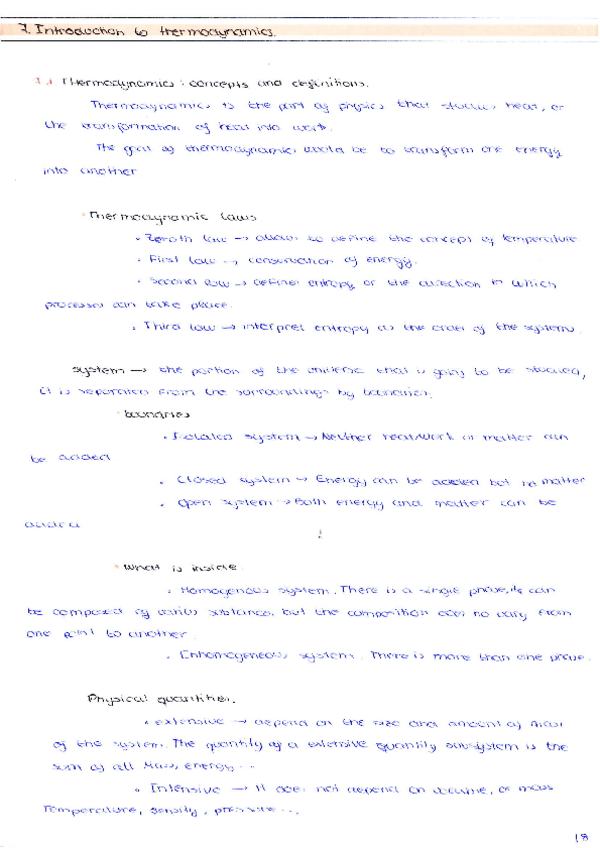 7. Introduction to thermodynamics.
7.1 Thermodynamics: concepts and definitions.
Thermodynamics is the part of physics that studies heat, or
the transformation of heat into work.
The goal of thermodynamics would be to transform one energy
into another
Thermodynamic laws
• Zeroth law → allows to define the concept of temperature
• First law → conservation of energy.
• Second law → defines entropy or the direction in which
processes can take place.
• Third law → interpret entropy as the order of the systems.
System → the portion of the universe that is going to be studied,
it is separated from the surroundings by boundaries.
• boundaries
• Isolated system → Neither heat/work or matter can
be added
• Closed system → Energy can be added but no matter
• Open system → Both energy and matter can be
added
• What is inside
• Homogenous system. There is a single phase, it can
be composed of various substances, but the composition does no vary from
one point to another.
• Enhomogeneous system. There is more than one phase.
Physical quantities.
• extensive → depend on the size and amount of mass
of the system. The quantity of a extensive quantity subsystem is the
sum of all. Mass, energy...
• Intensive → It does not depend on volume, or mass
Temperature, density, pressure...
18